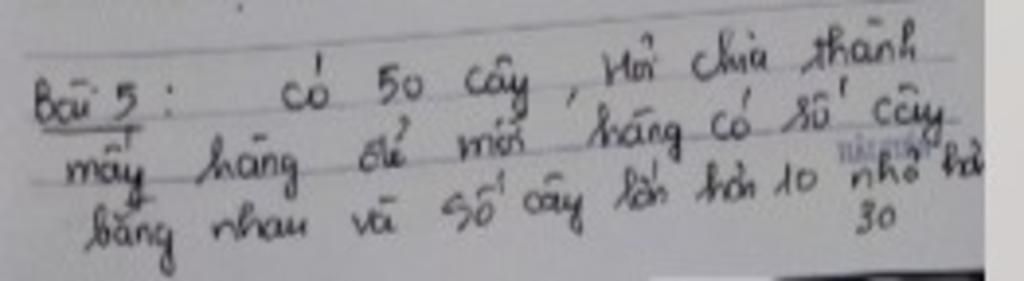 Bài 5: Có 50 cây, Hỏi chia thành
mấy hàng để mỗi hàng có số cây
bằng nhau và số cây lớn hơn 10 nhỏ hơn
30